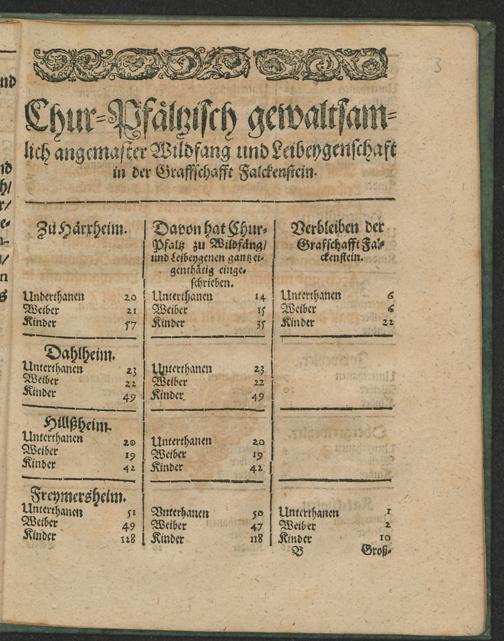 3
Chur-Pfältzisch gewaltsam-
lich angemaster Wildfang und Leibeygenschaft
in der Graffschafft Falckenstein.
Zu Härxheim.
Underthanen 20
Weiber 21
Kinder 57
Davon hat Chur-
Pfaltz zu Wildfäng/
und Leibeygenen gantz ei-
genthätig einge-
schrieben.
Unterthanen 14
Weiber 15
Kinder 35
Verbleiben der
Grafschafft Fal-
ckenstein.
Unterthanen 6
Weiber 6
Kinder 22
Dahlheim.
Unterthanen 23
Weiber 22
Kinder 49
Unterthanen 23
Weiber 22
Kinder 49
Hillßheim.
Unterthanen 20
Weiber 19
Kinder 42
Unterthanen 20
Weiber 19
Kinder 42
Freymersheim.
Unterthanen 51
Weiber 49
Kinder 128
Vnterthanen 50
Weiber 47
Kinder 118
Unterthanen 1
Weiber 2
Kinder 10
B Groß-